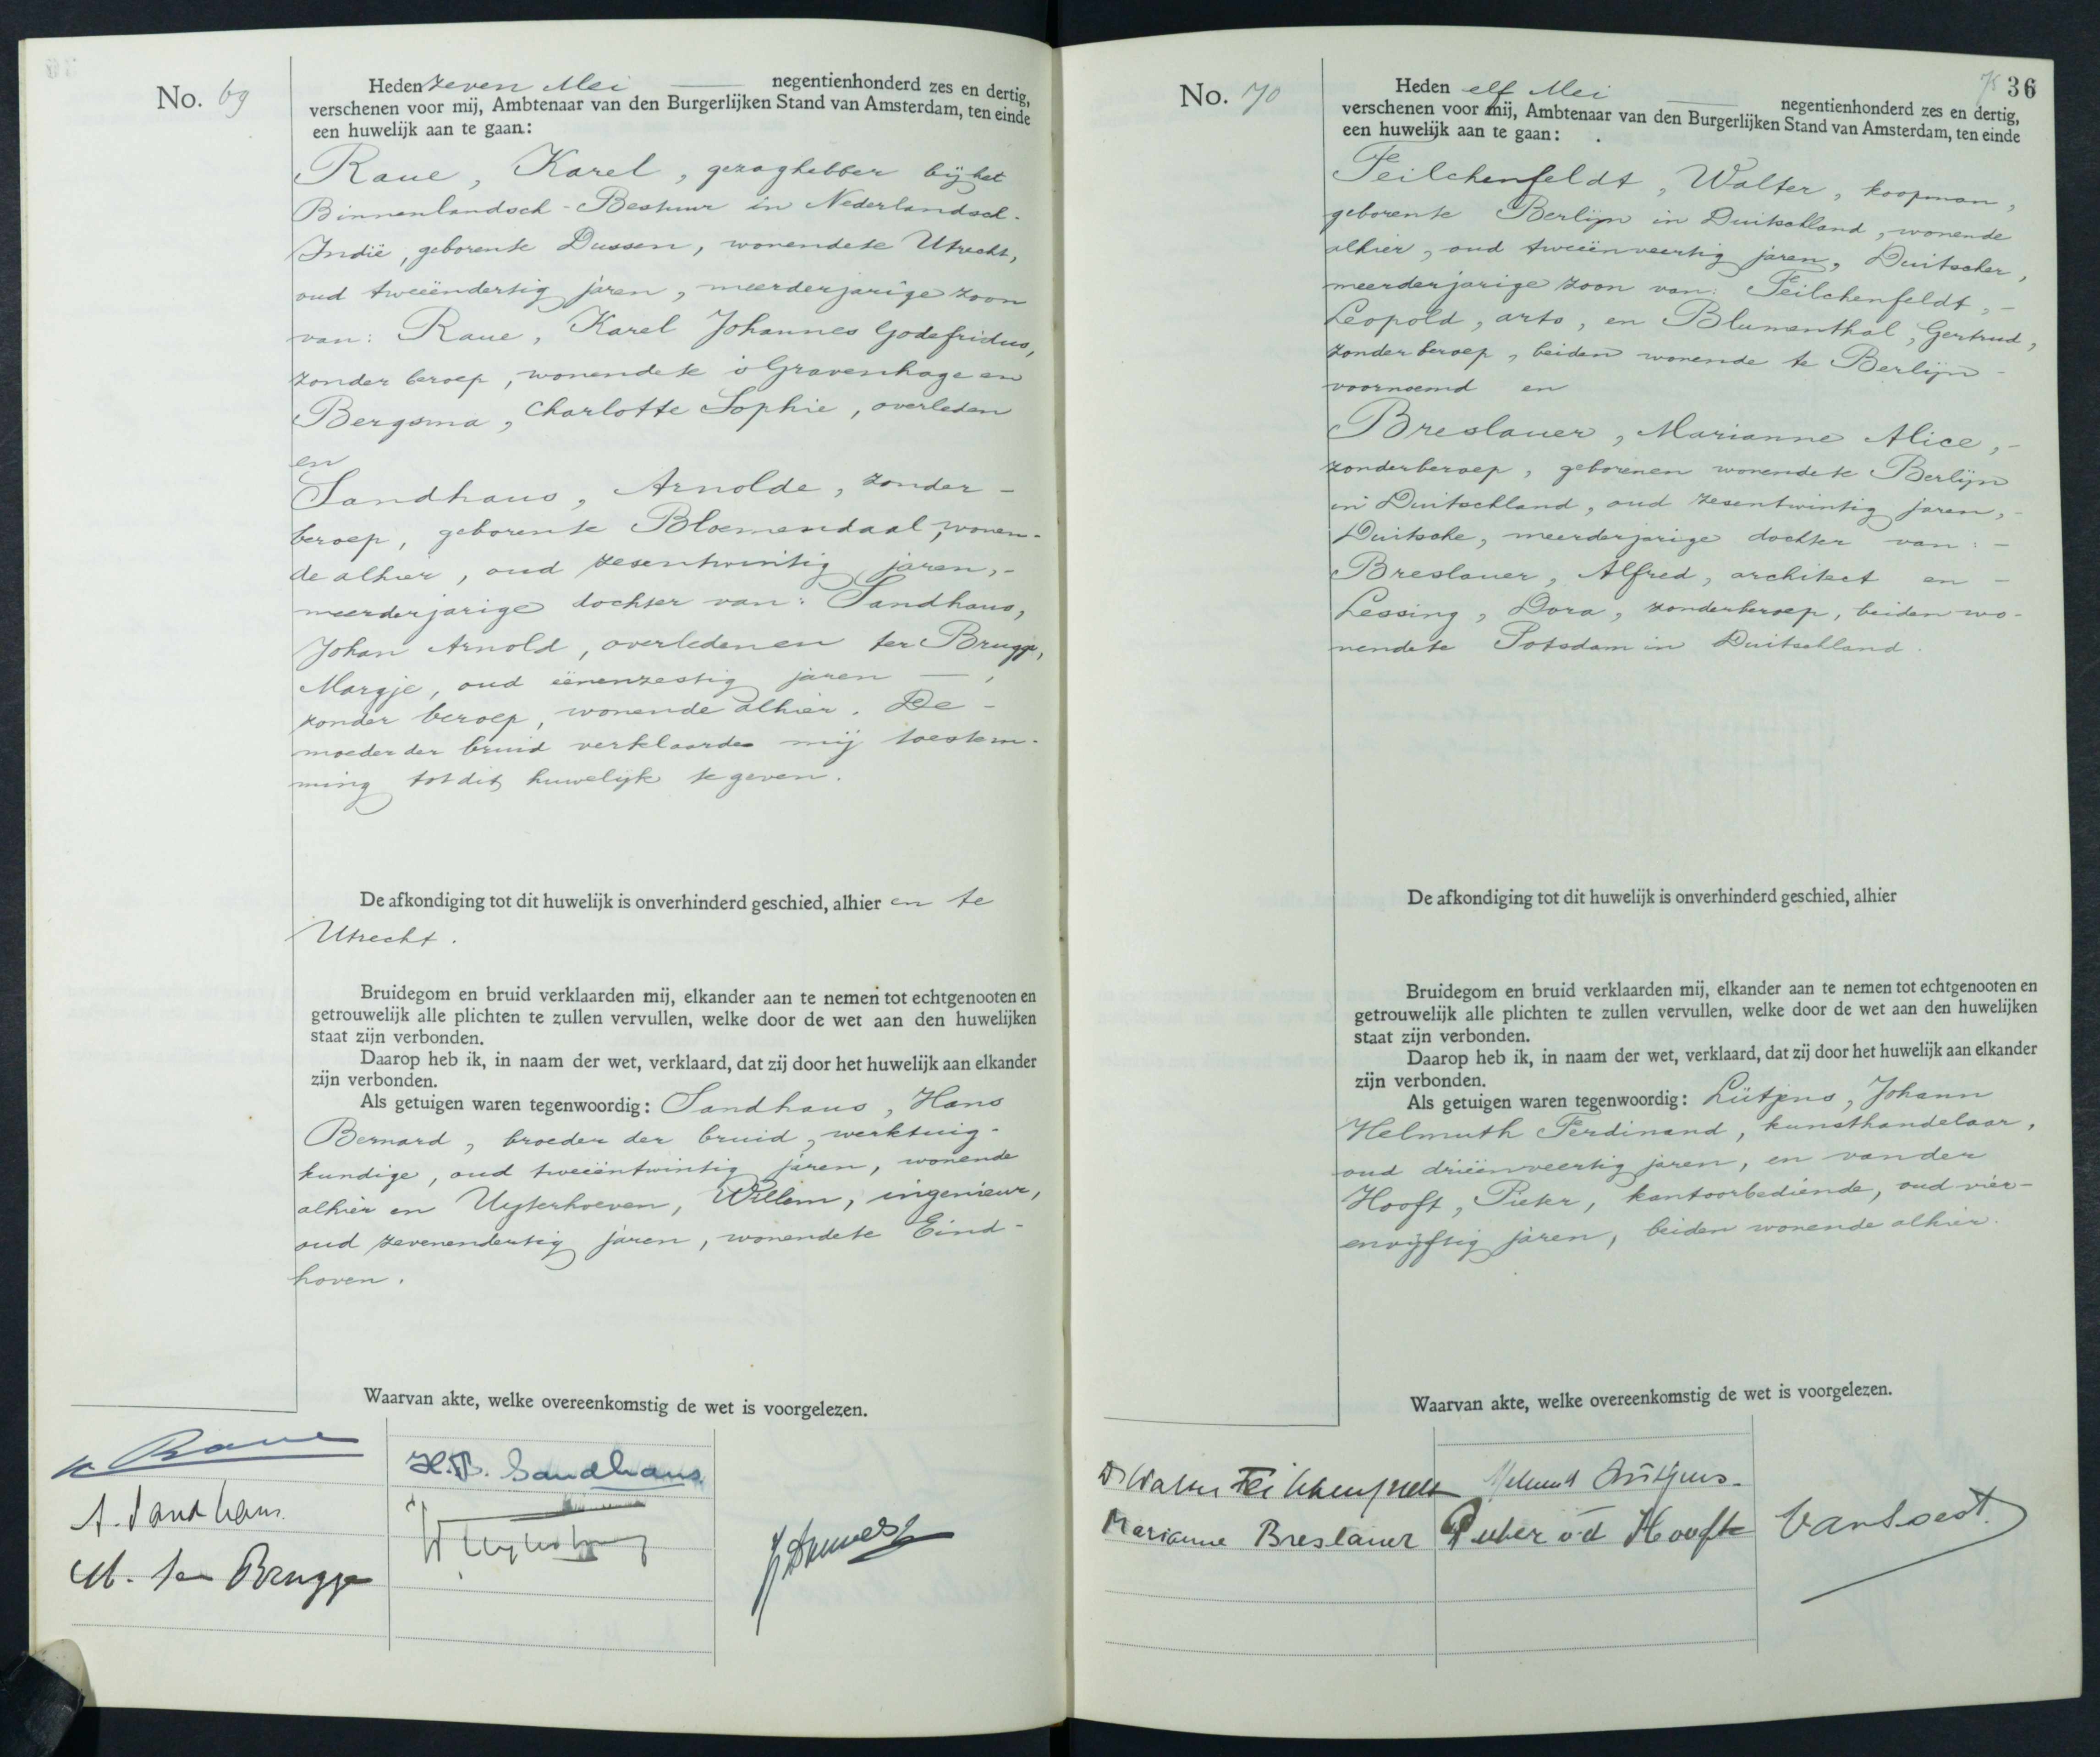 No. 69
Heden zeven Mei negentienhonderd zes en dertig,
verschenen voor mij, Ambtenaar van den Burgerlijken Stand van Amsterdam, ten einde
een huwelijk aan te gaan:
Raue, Karel, gezaghebber bij het
Binnenlandsch-Bestuur in Nederlandsch-
Indië, geboren te Dussen, wonende te Utrecht,
oud tweeëndertig jaren, meerderjarige zoon
van: Raue, Karel Johannes Godefridus,
zonder beroep, wonende te 's Gravenhage en
Bergsma, Charlotte Sophie, overleden
en
Sandhaus, Arnolde, zonder -
beroep, geboren te Bloemendaal, wonen-
de alhier, oud zesentwintig jaren, -
meerderjarige dochter van: Sandhaus,
Johan Arnold, overleden en ter Brugge,
Margje, oud eenenzestig jaren — ,
zonder beroep, wonende alhier. De -
moeder der bruid verklaarde mij toestem-
ming tot dit huwelijk te geven.
De afkondiging tot dit huwelijk is onverhinderd geschied, alhier en te
Utrecht.
Bruidegom en bruid verklaarden mij, elkander aan te nemen tot echtgenooten en
getrouwelijk alle plichten te zullen vervullen, welke door de wet aan den huwelijken
staat zijn verbonden.
Daarop heb ik, in naam der wet, verklaard, dat zij door het huwelijk aan elkander
zijn verbonden.
Als getuigen waren tegenwoordig: Sandhaus, Hans
Bernard, broeder der bruid, werktuig-
kundige, oud tweeëntwintig jaren, wonende
alhier en Uyterhoeven, Willem, ingenieur,
oud zevenendertig jaren, wonende te Eind-
hoven.
Waarvan akte, welke overeenkomstig de wet is voorgelezen.
K. Raue
H.B. Sandhaus
A. Sandhaus
M. ter Brugge
36
No. 70
Heden elf Mei negentienhonderd zes en dertig,
verschenen voor mij, Ambtenaar van den Burgerlijken Stand van Amsterdam, ten einde
een huwelijk aan te gaan:
Feilchenfeldt, Walter, koopman,
geboren te Berlijn in Duitschland, wonende
alhier, oud tweeënveertig jaren, Duitscher,
meerderjarige zoon van: Feilchenfeldt, -
Leopold, arts, en Blumenthal, Gertrud,
zonder beroep, beiden wonende te Berlijn -
voornoemd en
Breslauer, Marianne Alice, -
zonder beroep, geboren en wonende te Berlijn
in Duitschland, oud zesentwintig jaren, -
Duitsche, meerderjarige dochter van: -
Breslauer, Alfred, architect en -
Lessing, Dora, zonder beroep, beiden wo-
nende te Potsdam in Duitschland.
De afkondiging tot dit huwelijk is onverhinderd geschied, alhier
Bruidegom en bruid verklaarden mij, elkander aan te nemen tot echtgenooten en
getrouwelijk alle plichten te zullen vervullen, welke door de wet aan den huwelijken
staat zijn verbonden.
Daarop heb ik, in naam der wet, verklaard, dat zij door het huwelijk aan elkander
zijn verbonden.
Als getuigen waren tegenwoordig: Lütjens, Johann
Helmuth Ferdinand, kunsthandelaar,
oud drieënveertig jaren, en van der
Hooft, Pieter, kantoorbediende, oud vier-
envijftig jaren, beiden wonende alhier.
Waarvan akte, welke overeenkomstig de wet is voorgelezen.
Dr Walter Feilchenfeldt
Helmut Lütjens
Marianne Breslauer
Pieter v d Hooft
van Soest